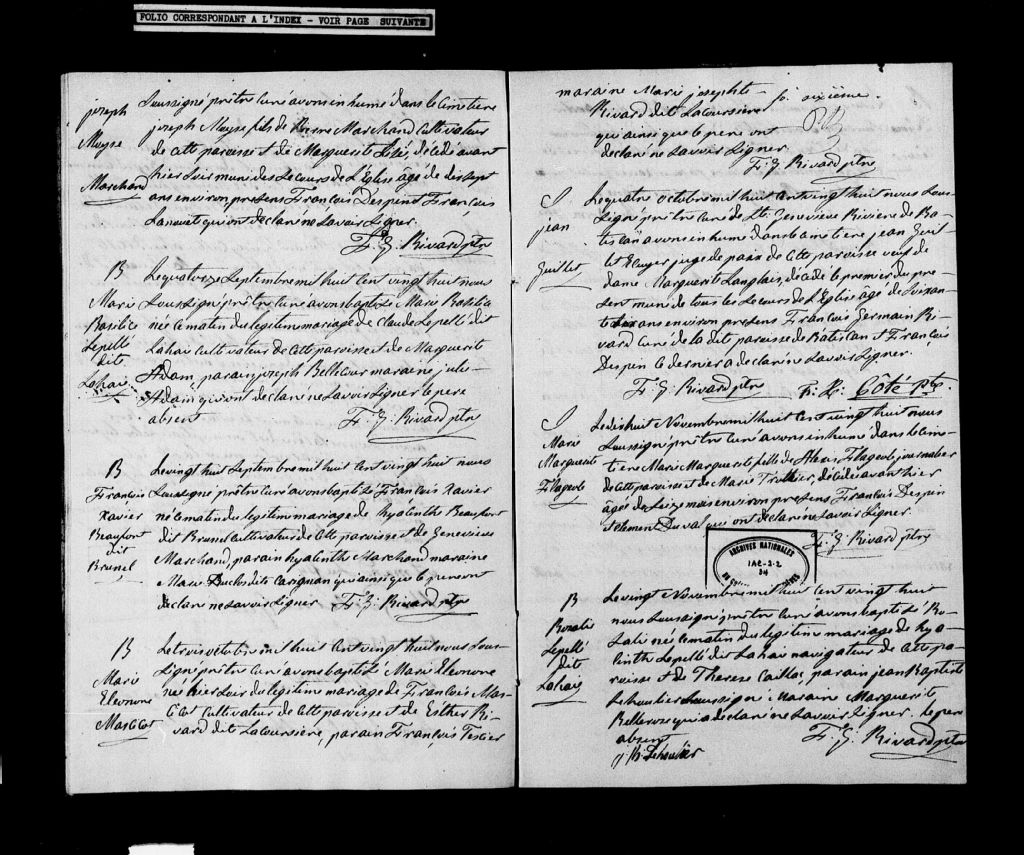 FOLIO CORRESPONDANT A L'INDEX - VOIR PAGE SUIVANTE
joseph
Muyse
Marchand
Soussigné prêtre curé avons inhumé dans le cimetière
joseph Moyse fils de Pierre Marchand cultivateur
de cette paroisse et de Marguerite décédé avant
hier soir muni des secours de l'Eglise âgé de dix sept
ans environ presens François Despin et François
Lanouet qui ont déclaré ne savoir signer.
F. X. Rivard ptre
B
Marie
Basilice
Lepellé
dit
Lahaie
Le quatorze Septembre mil huit cent vingt huit nous
Soussigné prêtre curé avons baptisé Marie Basilice
née ce matin du legitime mariage de Claude Lepellé dit
Lahaie cultivateur de cette paroisse et de Marguerite
Adam, parain joseph Bellecour maraine julie
Adam qui ont declaré ne savoir signer le pere
absent F. X. Rivard ptre
B
François
Xavier
Beaufort
dit
Brunel
Le vingt huit Septembre mil huit cent vingt huit nous
soussigné prêtre curé avons baptisé François Xavier
né ce matin du legitime mariage de hyacinthe Beaufort
dit Brunel cultivateur de cette paroisse et de Genevieve
Marchand, parain hyacinth Marchand maraine
Marie Duclos dite Carignan qui ainsi que le pere ont
declaré ne savoir signer F. X. Rivard ptre
B
Marie
Eleonore
Mascicot
Le trois octobre mil huit cent vingt huit nous sous-
signé prêtre curé avons baptisé Marie Eleonore
née hier soir du legitime mariage de François Mas-
cicot cultivateur de cette paroisse et de Esther Ri-
vard dite Lacoursière, parain François Tessier
maraine Marie josephte
Rivard dit Lacoursière
qui ainsi que le pere ont
declaré ne savoir signer
F. X. Rivard ptre
fo. sixième.
S
jean
Guillet
Le quatre octobre mil huit cent vingt huit nous sous-
signé prêtre curé de Ste Genevieve Riviere de Ba-
tiscan avons inhumé dans le cimetiere jean Guil-
let Ecuyer juge de paix de cette paroisse veuf de
dame Marguerite Langlais, décédé le premier du pre-
sent muni de tous les secours de l'Eglise âgé de soixan-
te ans environ presens François Germain Ri-
vard curé de la dite paroisse de Batiscan et François
Despin ce dernier a declaré ne savoir signer.
F. X. Rivard ptre Côté ptre
S
Marie
Marguerite
Flageole
Le dix huit Novembre mil huit cent vingt huit nous
Soussigné prêtre curé avons inhumé dans le cime-
tiere Marie Marguerite fille de Alexis Flageole journalier
de cette paroisse et de Marie Trottier, décédée avant hier
âgée de seize mois environ presens François Despin
et Clement Duval qui ont declaré ne savoir signer
F. X. Rivard ptre
ARCHIVES NATIONALES
B
Rosalie
Lepellé
dit
Lahaie
Le vingt Novembre mil huit cent vingt huit
nous soussigné prêtre curé avons baptisé Ro-
salie née ce matin du legitime mariage de hya-
cinth Lepellé dit Lahaie navigateur de cette pa-
roisse et de Therese Cailla, parain jean Baptiste
Lehoulier soussigné maraine Marguerite
Bellerose qui a declaré ne savoir signer. le pere
absent F. X. Rivard ptre
J. B. Lehoulier